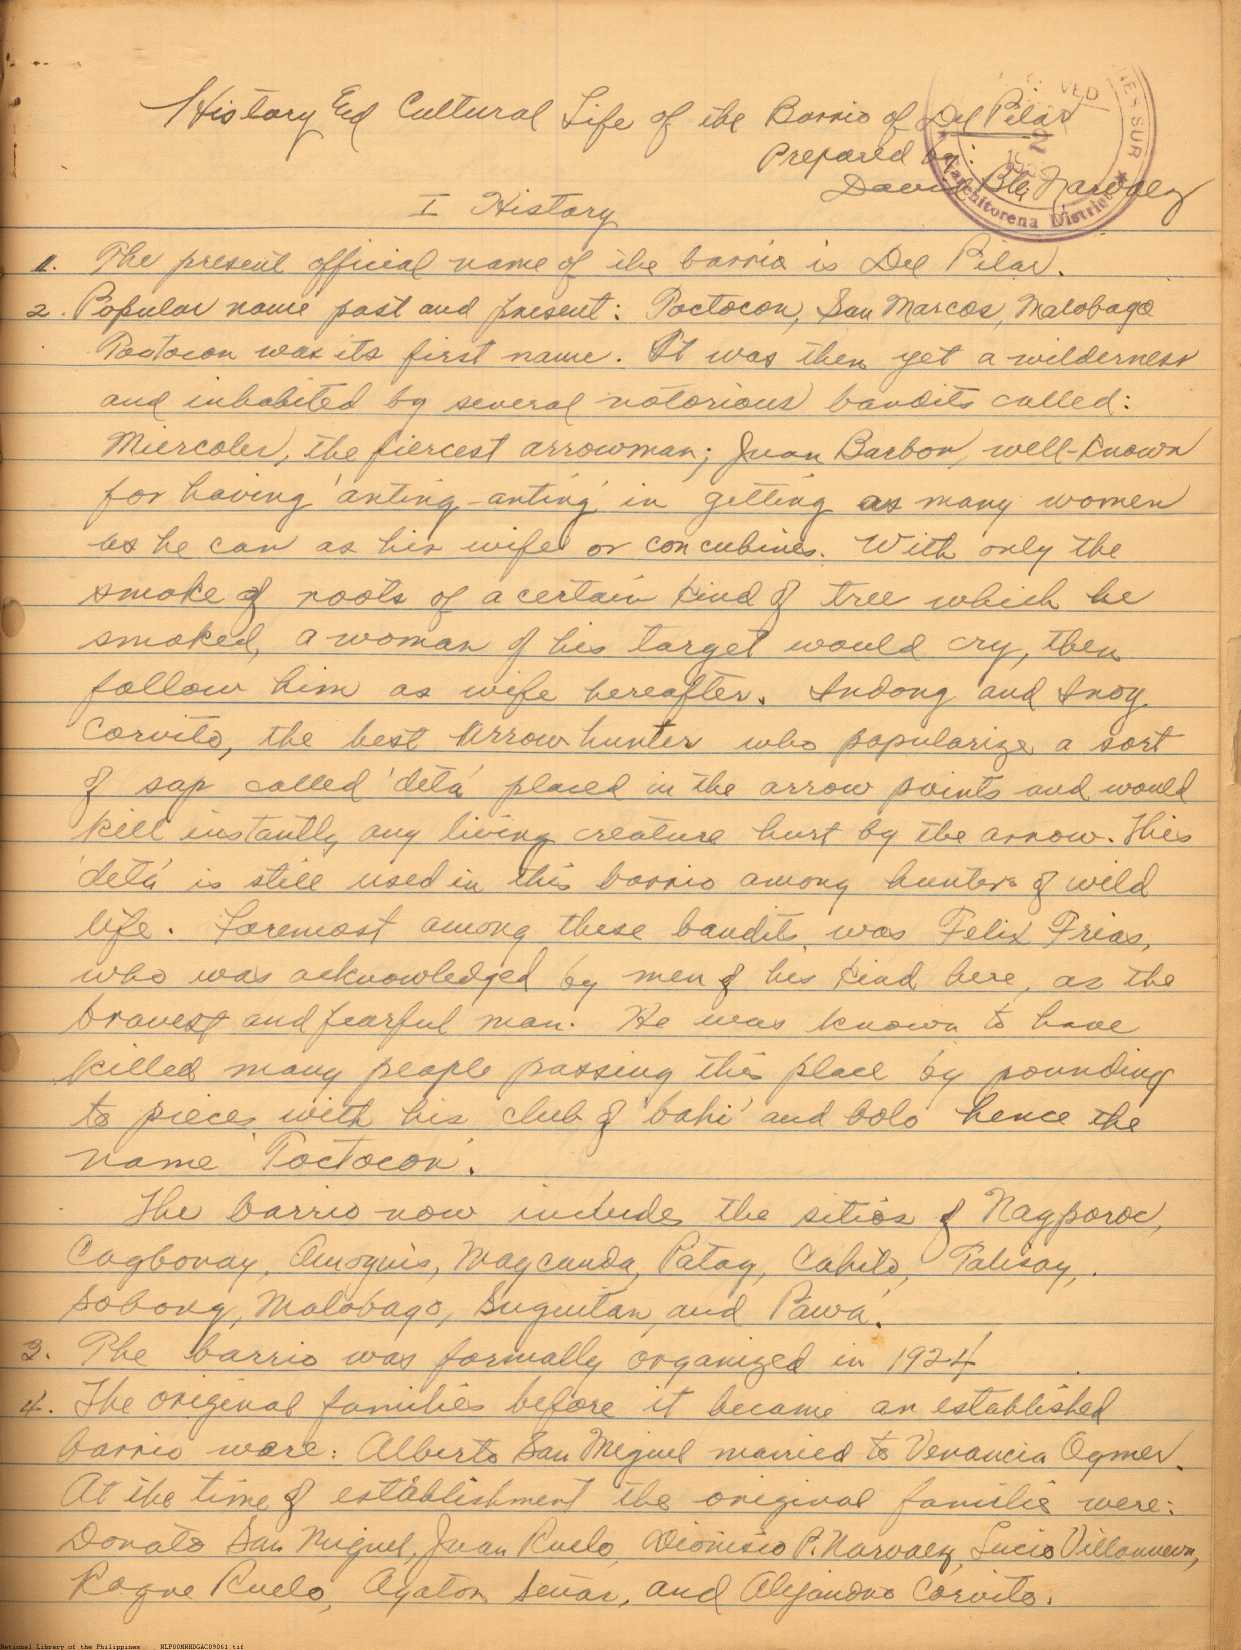 History and Cultural Life of the Barrio of Del Pilar
Prepared by:
David Bla Narvaez
VED
NES SUR
Garchitorena District
I History
1. The present official name of the barrio is Del Pilar.
2. Popular name past and present: Toctocon, San Marcos, Malobago
Toctocon was its first name. It was then yet a wilderness
and inhabited by several notorious bandits called:
Miercoles, the fiercest arrowman; Juan Barbon, well-known
for having 'anting-anting' in getting as many women
as he can as his wife or concubines. With only the
smoke of roots of a certain kind of tree which he
smoked, a woman of his target would cry, then
follow him as wife hereafter. Indong and Inoy
Corvito, the best Arrow hunter who popularize a sort
of sap called 'deta' placed in the arrow points and would
kill instantly any living creature hurt by the arrow. This
'deta' is still used in this barrio among hunters of wild
life. Foremost among these bandits was Felix Frias,
who was acknowledged by men of his kind here, as the
bravest and fearful man. He was known to have
killed many people passing this place by pounding
to pieces with his club of 'bahi' and bolo hence the
name 'Toctocon'.
The barrio now includes the sitios of Nagporoc,
Cagbonay, Amoguis, Magcunda, Patag, Cahilo, Talisay,
Sobong, Malobago, Suguitan, and Pawa.
3. The barrio was formally organized in 1924
4. The original families before it became an established
barrio were: Alberto San Miguel married to Venancia Ogmer.
At the time of establishment the original familie were:
Donato San Miguel, Juan Ruelo, Dionisio P. Narvaez, Lucio Villanueva,
Roque Ruelo, Agaton Señar, and Alejandro Corvito.
National Library of the Philippines NLPOOMNHDGAC09061.tif